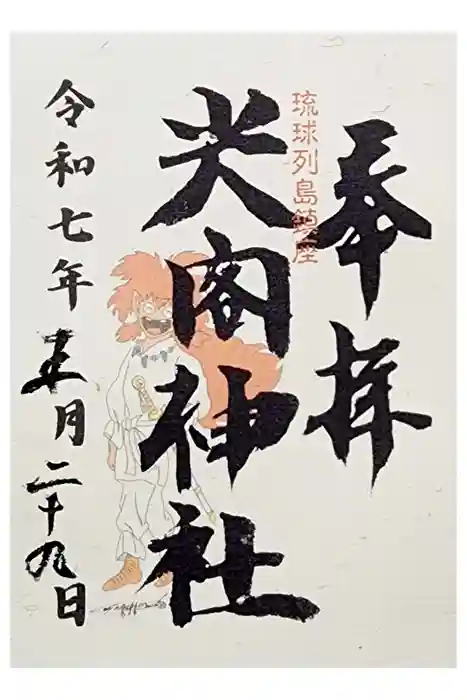 奉拝
琉球列島鎮座
尖閣神社
令和七年月二十九日